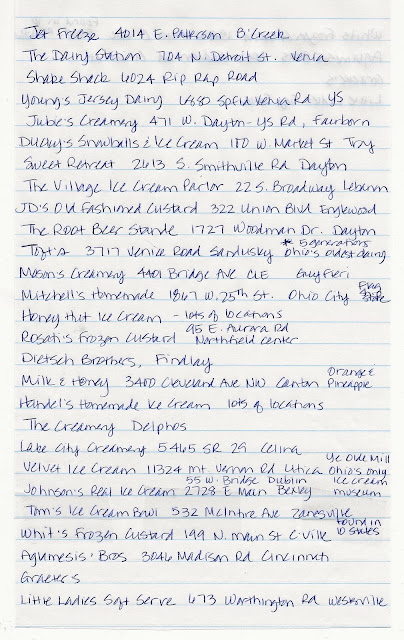 Jet Freeze 4014 E. Patterson B'Creek
The Dairy Station 704 N. Detroit St. Xenia
Shake Shack 6024 Rip Rap Road
Young's Jersey Dairy 6880 Spfld Xenia Rd YS
Jubie's Creamery 471 W. Dayton-YS Rd, Fairborn
Duckys Snowballs & Ice Cream 110 W. Market St Troy
Sweet Retreat 2613 S. Smithville Rd Dayton
The Village Ice Cream Parlor 22 S. Broadway Lebanon
JD's Old Fashioned Custard 322 Union Blvd Englewood
The Root Beer Stande 1727 Woodman Dr. Dayton
* 5 generations
Toft's 3717 Venice Road Sandusky Ohio's oldest dairy
Mason's Creamery 4401 Bridge Ave CLE Guy Fieri
Mitchell's Homemade 1867 W. 25th St. Ohio City Flag Ship Store
Honey Hut Ice Cream - lots of locations
Rosati's Frozen Custard 95 E. Aurora Rd Northfield Center
Dietsch Brothers, Findlay
Milk & Honey 3400 Cleveland Ave NW Canton Orange & Pineapple
Handel's Homemade Ice Cream lots of locations
The Creamery Delphos
Lake City Creamery 5465 SR 29 Celina
Velvet Ice Cream 11324 Mt. Vernon Rd Utica Ye Olde Mill Ohio's only ice cream museum
Johnson's Real Ice Cream 55 W. Bridge Dublin 2728 E Main Bexley
Tom's Ice Cream Bowl 532 McIntire Ave Zanesville
Whit's Frozen Custard 199 N. Main St C'Ville found in 10 states
Aglamesis Bros 3046 Madison Rd Cincinnati
Graeter's
Little Ladies Soft Serve 673 Worthington Rd Westerville